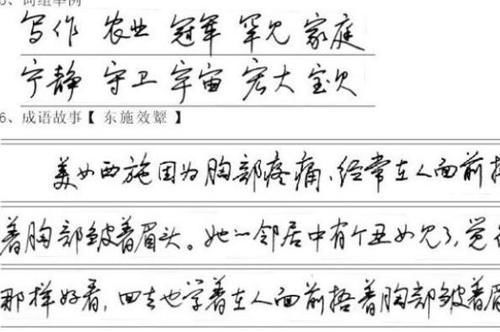 、词组举例
写作 农业 冠军 罕见 家庭
宁静 守卫 宇宙 宏大 宝贝
6、成语故事【 东施效颦 】
美女西施因为胸部疼痛，经常在人面前捂
着胸部皱着眉头。她一邻居中有个丑女见了，觉
那样好看，回去也学着在人面前捂着胸部皱着眉